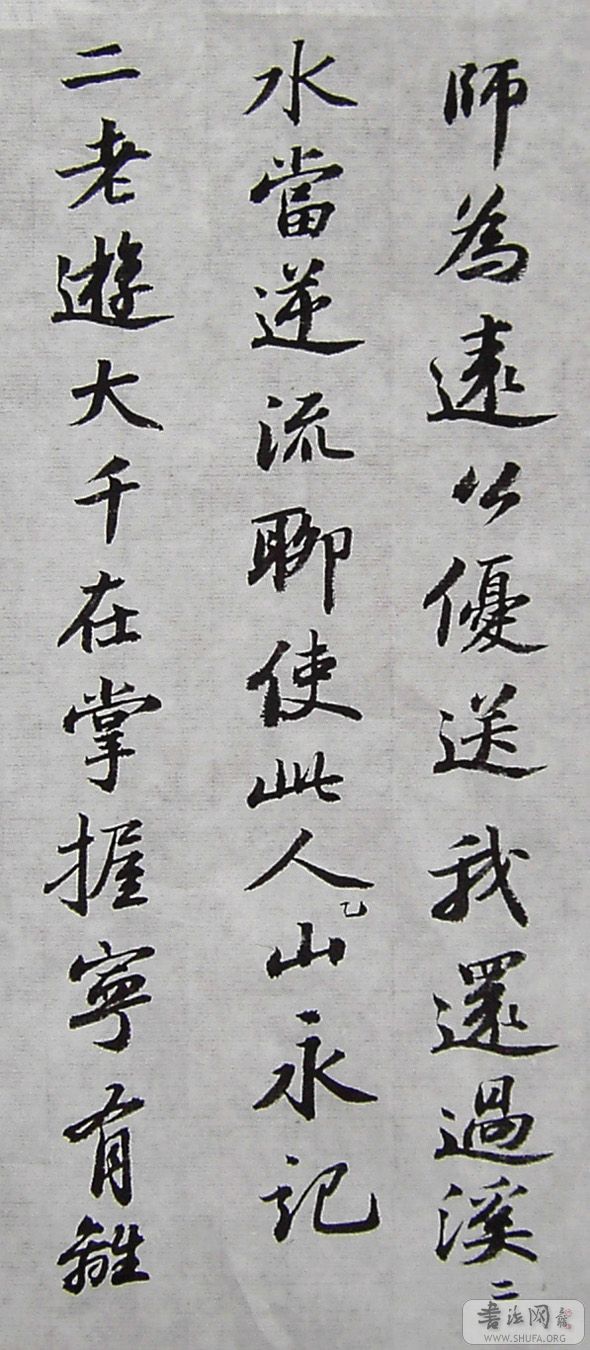 師為遠公優送我還過溪二
水當逆流聊使此人山永記
乙
二老遊大千在掌握寧有離
書法网
WWW.SHUFA.ORG